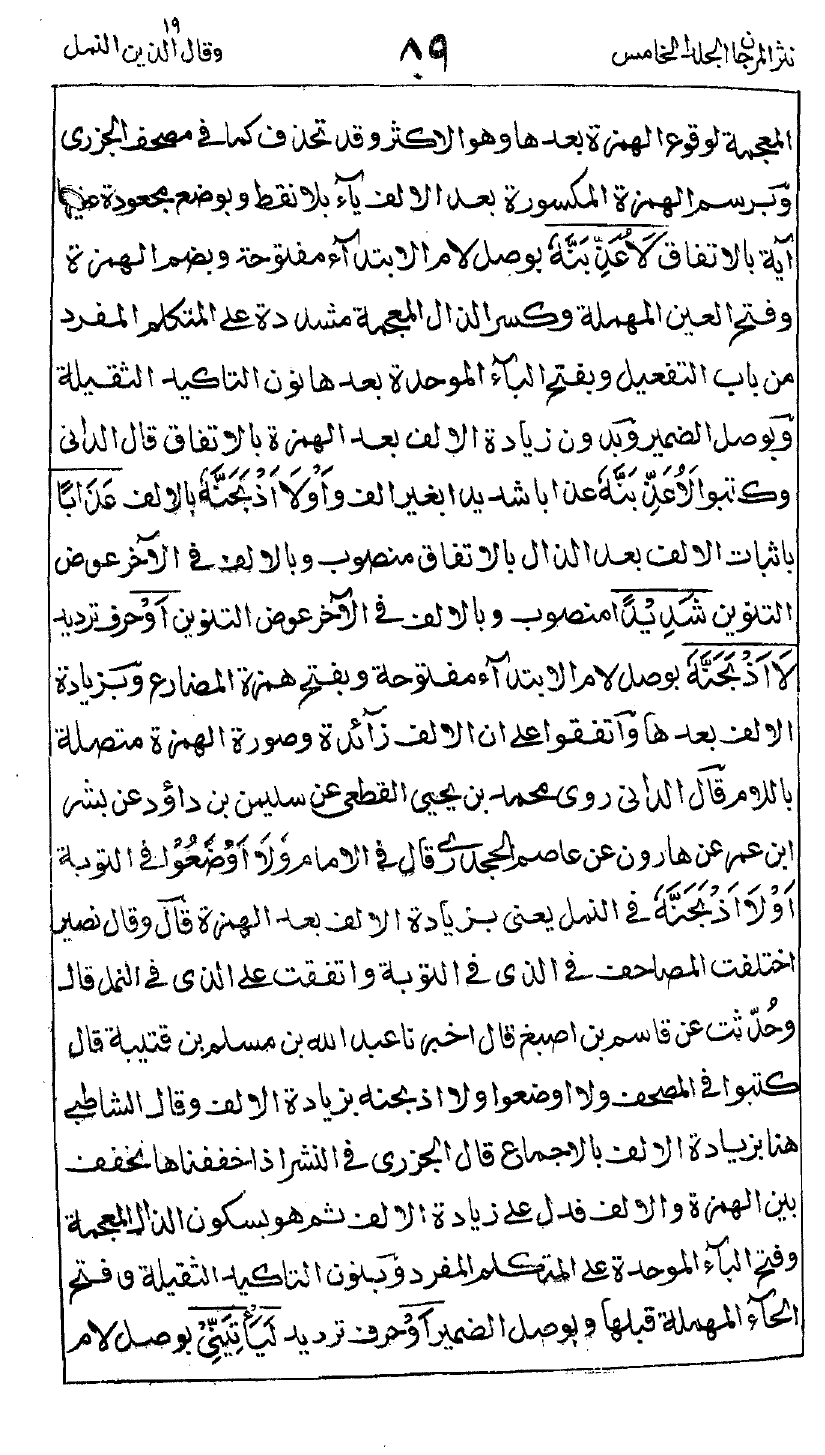 نثر المرجان الجلد الخامس
٨٩
وقال الذين ١٩ النمل
المعجمة لوقوع الهمزة بعدها وهو الاكثر وقد تحذف كما في مصحف الجزرى
وَبرسم الهمزة المكسورة بعد الالف يآء بلا نقط وبوضع مجعودة عليها
آية بالاتفاق لَاُعَذِّبَنَّهٗ بوصل لام الابتدآء مفتوحة وبضم الهمزة
وفتح العين المهملة وكسر الذال المعجمة مشددة على المتكلم المفرد
من باب التفعيل وبفتح البآء الموحدة بعدها نون التاكيد الثقيلة
وَبوصل الضمير وَبدون زيادة الالف بعد الهمزة بالاتفاق قال الدانى
وكتبوا لَاُعَذِّبَنَّهٗ عذابا شديدا بغير الف وَاَوْلَا۟اَذْبَحَنَّهٗ بالالف عَذَابًا
باثبات الالف بعد الذال بالاتفاق منصوب وبالالف في الآخر عوض
التنوين شَدِيْدًا منصوب وبالالف في الآخر عوض التنوين اَوْ حرف ترديد
لَااَذْبَحَنَّهٗ بوصل لام الابتدآء مفتوحة وبفتح همزة المضارع وَبزيادة
الالف بعدها وَاتفقوا على ان الالف زآئدة وصورة الهمزة متصلة
باللام قَال الدانى روى محمد بن يحيى القطعى عن سليمن بن داؤد عن بشر
ابن عمر عن هارون عن عاصم الجحدرى قال في الامام وَلَااَوْضَعُوْا في التوبة
اَوْلَااَذْبَحَنَّهٗ في النمل يعنى بزيادة الالف بعد الهمزة قَال وقال نصير
اختلفت المصاحف في الذى في التوبة واتفقت على الذى في النمل قال
وحُدّثت عن قاسم بن اصبغ قال اخبرنا عبد الله بن مسلم بن قتيبة قال
كتبوا في المصحف ولااوضعوا ولااذبحنه بزيادة الالف وقال الشاطبي
هنا بزيادة الالف بالاجماع قال الجزرى في النشر اذا خففناها نخفف
بين الهمزة والالف فدل على زيادة الالف ثم هو بسكون الذال المعجمة
وفتح البآء الموحدة على المتكلم المفرد وَبنون التاكيد الثقيلة وفتح
الحآء المهملة قبلها وبوصل الضمير اَوْ حرف ترديد لَيَاْتِيَنِّيْ بوصل لام